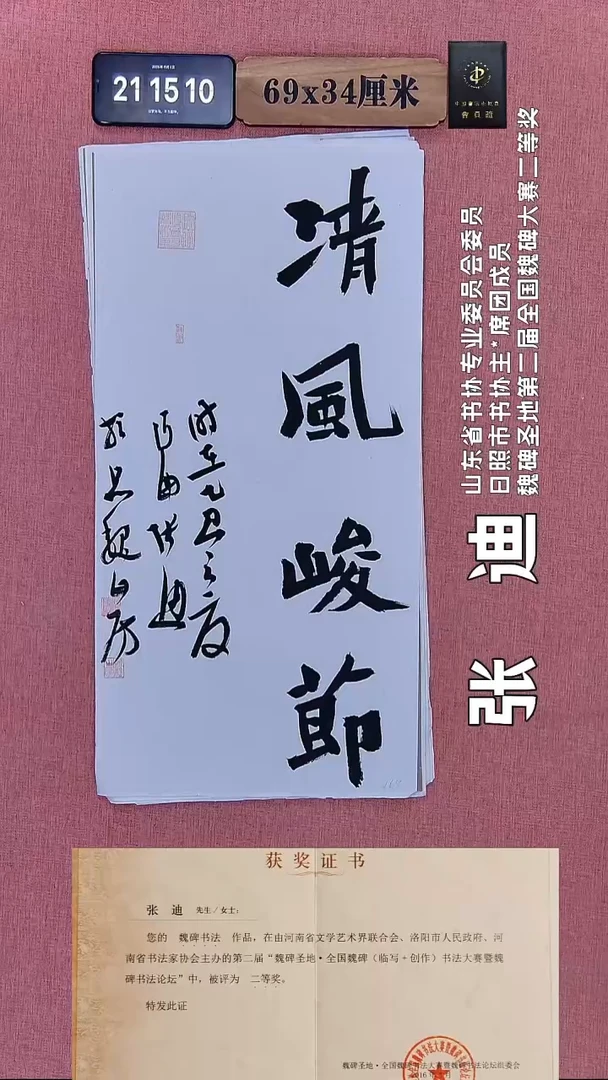 21 15 10
69x34厘米
清
風
峻
節
山东省书协专业委员会委员
日照市书协主*席团成员
魏碑圣地第二届全国魏碑大赛二等奖
张 迪
获奖证书
张 迪 先生/女士:
您的 魏碑书法 作品,在由河南省文学艺术界联合会、洛阳市人民政府、河
南省书法家协会主办的第二届“魏碑圣地·全国魏碑(临写+创作)书法大赛暨魏
碑书法论坛”中,被评为 二等奖。
特发此证
魏碑圣地·全国魏碑书法大赛暨魏碑书法论坛组委会